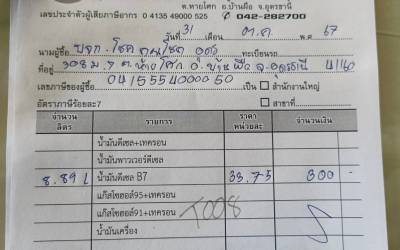 ต.หายโศก อ.บ้านผือ จ.อุดรธานี
เลขประจำตัวผู้เสียภาษีอากร 0 4135 49000 525 042-282700
วันที่ 31 เดือน ต.ค. พ.ศ. 67
นามผู้ซื้อ หจก. โชค ทะเบียนรถ
ที่อยู่ 308 ม.7 ต. หายโศก อ. บ้านผือ จ.อุดรธานี 41160
เลขภาษีของผู้ซื้อ 0415554000050 เป็น สำนักงานใหญ่
อัตราภาษีร้อยละ7 สาขาที่
จำนวน ลิตร รายการ ราคา หน่วยละ จำนวนเงิน
น้ำมันดีเซล+เทครอน
น้ำมันพาวเวอร์ดีเซล
8.89 L น้ำมันดีเซล B7 33.75 300 -
แก๊สโซฮอล์95+เทครอน
แก๊สโซฮอล์91+เทครอน T008
น้ำมันเครื่อง